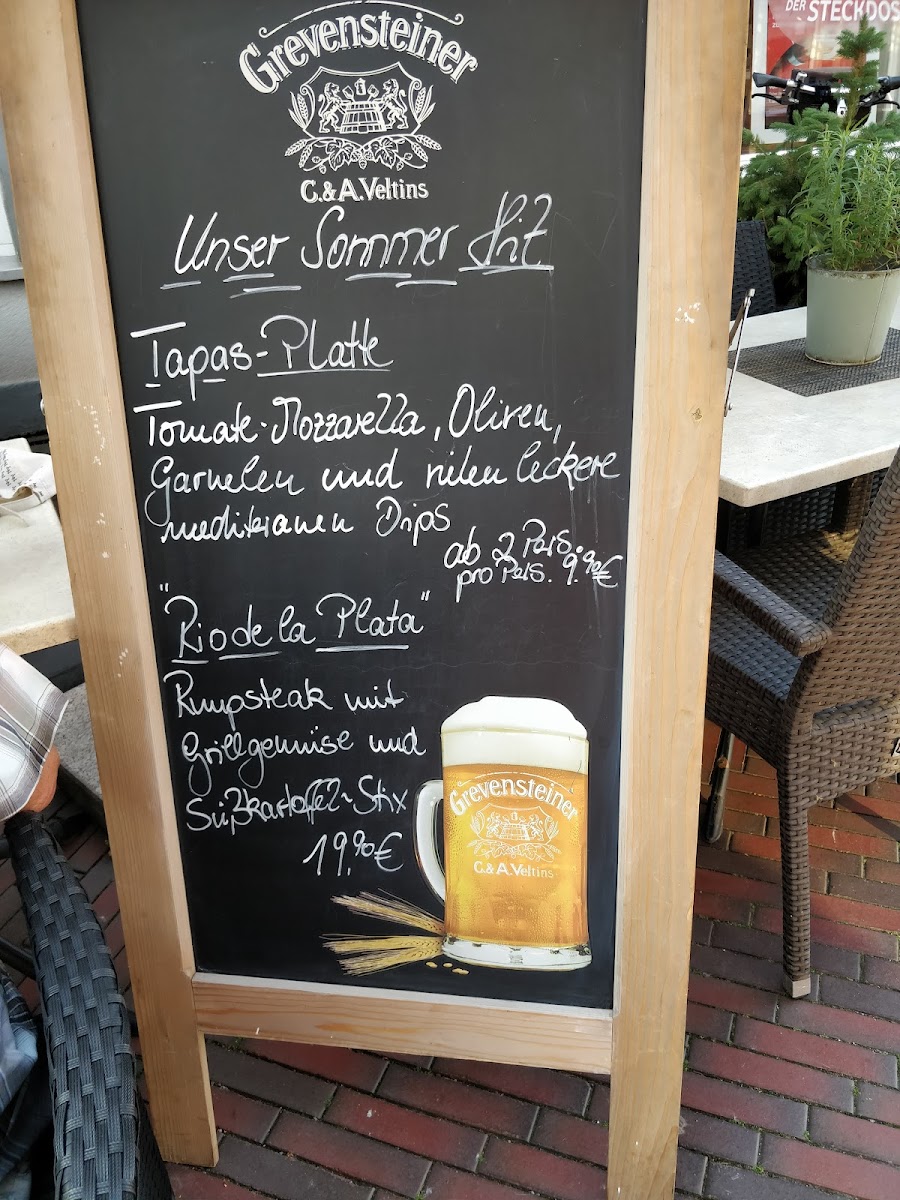 DER
STECKDOS
Grevensteiner
C.&A.Veltins
Unser Sommer Hit
Tapas-Platte
Tomate-Mozzarella, Oliven,
Garnelen und vielen leckere
mediteranen Dips
ab 2 Pers.
pro Pers. 9.90€
"Rio de la Plata"
Rumpsteak mit
Grillgemüse und
Süßkartoffel-Stix
19,90€
Grevensteiner
C.&A.Veltins